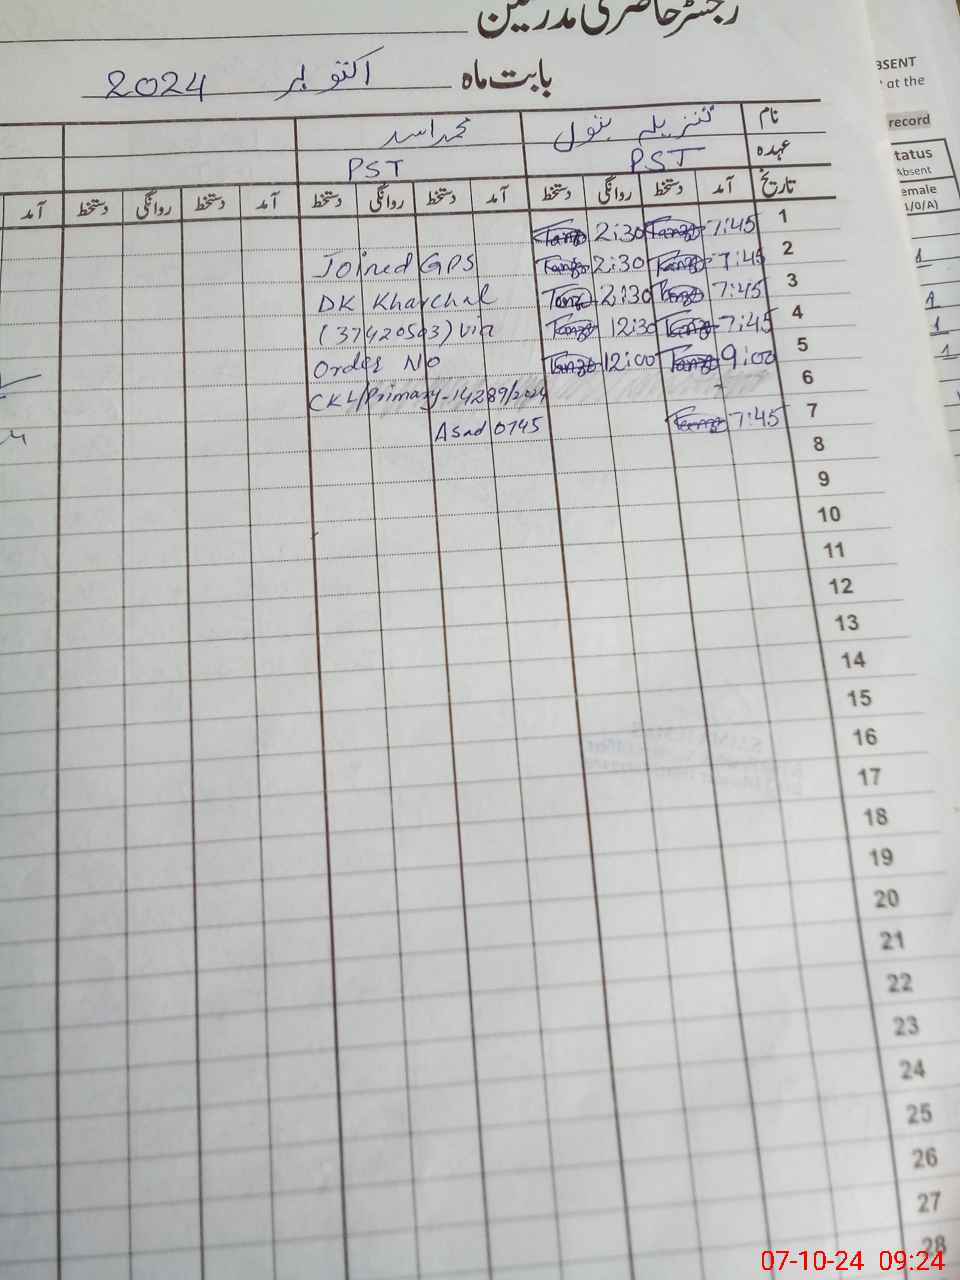 رجسٹر حاضری مدرسین
بابت ماہ اکتوبر 2024
نام تنزیلہ بتول محمد اسد
عہدہ PST PST
تاریخ آمد دستخط روانگی دستخط آمد دستخط روانگی دستخط آمد دستخط روانگی دستخط آمد
1 7:45 Tanz 2:30 Tanz
2 7:45 Tanz 2:30 Tanz Joined GPS
3 7:45 Tanz 2:30 Tanz DK Kharchal
4 7:45 Tanz 12:30 Tanz (37420503) via
5 9:00 Tanz 12:00 Tanz Order No
6 CKL/Primary-14289/2024
7 7:45 Tanz Asad 0745
8
9
10
11
12
13
14
15
16
17
18
19
20
21
22
23
24
25
26
27
28
BSENT
at the
record
tatus
Absent
emale
1/0/A)
1
1
1
1
07-10-24 09:24